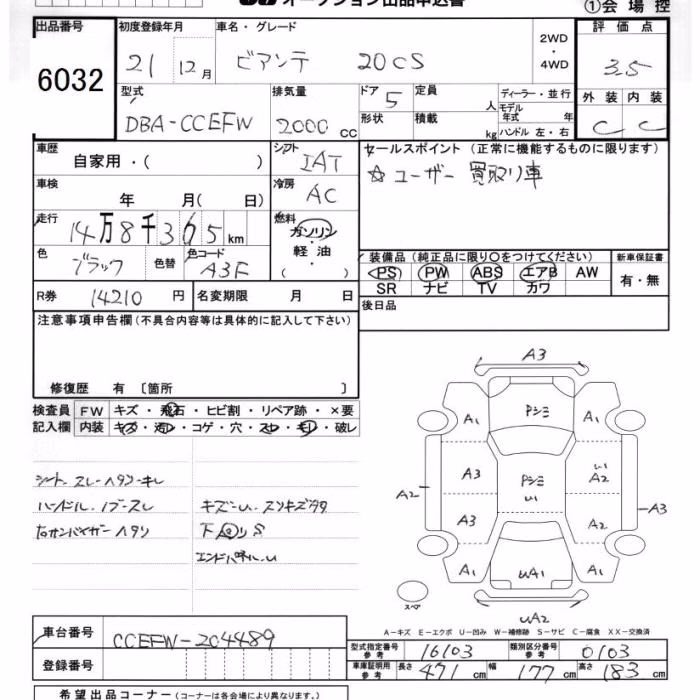 オークション出品申込書
①会場控
出品番号 6032
初度登録年月 21 12月
車名・グレード ビアンテ 20CS
2WD・4WD
評価点 3.5
外装 C 内装 C
型式 DBA-CCEFW
排気量 2000 cc
ドア 5 形状
定員 人 積載 kg
ディーラー・並行
モデル年式 年
ハンドル 左・右
車歴 自家用・( )
シフト IAT
セールスポイント (正常に機能するものに限ります)
☆ユーザー 買取り車
車検 年 月( 日)
冷房 AC
走行 14万8千365km
燃料 ガソリン・軽油・
色 ブラック 色替 色コード A3F
装備品 (純正品に限り○をつけてください)
PS PW ABS エアB AW
SR ナビ TV カワ
新車保証書 有・無
R券 14210 円 名変期限 月 日
後日品
注意事項申告欄(不具合内容等は具体的に記入して下さい)
修復歴 有 〔箇所 〕
検査員記入欄
FW キズ・飛石・ヒビ割・リペア跡・×要
内装 キズ・汚レ・コゲ・穴・スレ・キレ・破レ
シート スレ・ヘタリ・キレ
ハンドル.ノブ-スレ
キズ-U.スリキズ多々
右サンバイザー ヘタリ
下回りS
エンドパネル.U
A3
A1 Pシミ A1
A3 Pシミ U A2
A2 A3
A3 A2
A1 UA1 A1
スペア
UA2
A-キズ E-エクボ U-凹み W-補修跡 S-サビ C-腐食 XX-交換済
車台番号 CCEFW-204489
登録番号
型式指定番号 参考 16103
類別区分番号 参考 0103
車庫証明用 参考 長さ 471 cm 幅 177 cm 高さ 183 cm
希望出品コーナー (コーナーは各会場により異なります。)